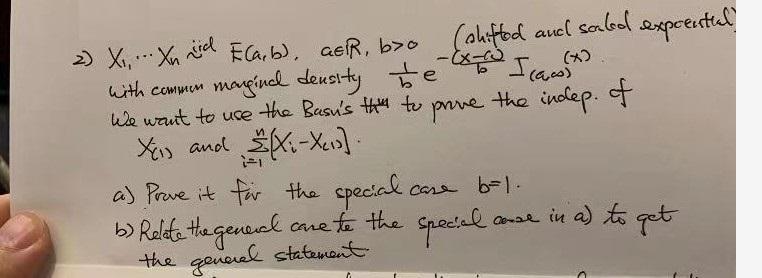 2) X₁, ... Xₙ iid E(a,b), a∈ℝ, b>0 (shifted and scaled exponential)
with common marginal density 1/b e^{-(x-a)/b} I_{(a,∞)}(x).
We want to use the Basu's thm to prove the indep. of
X₍₁₎ and Σ_{i=1}^{n} [Xᵢ-X₍₁₎].
a) Prove it for the special case b=1.
b) Relate the general case to the special case in a) to get
the general statement